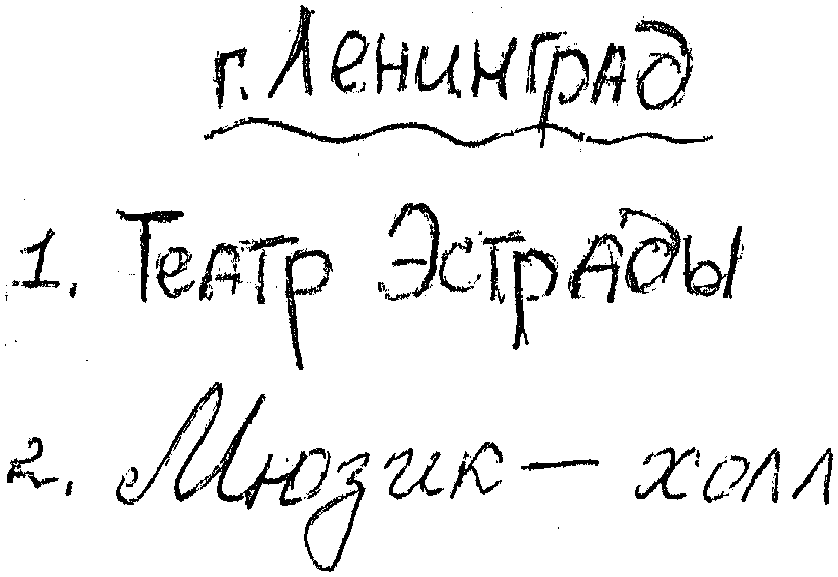 г. Ленинград
1. Театр Эстрады
2. Мюзик – холл